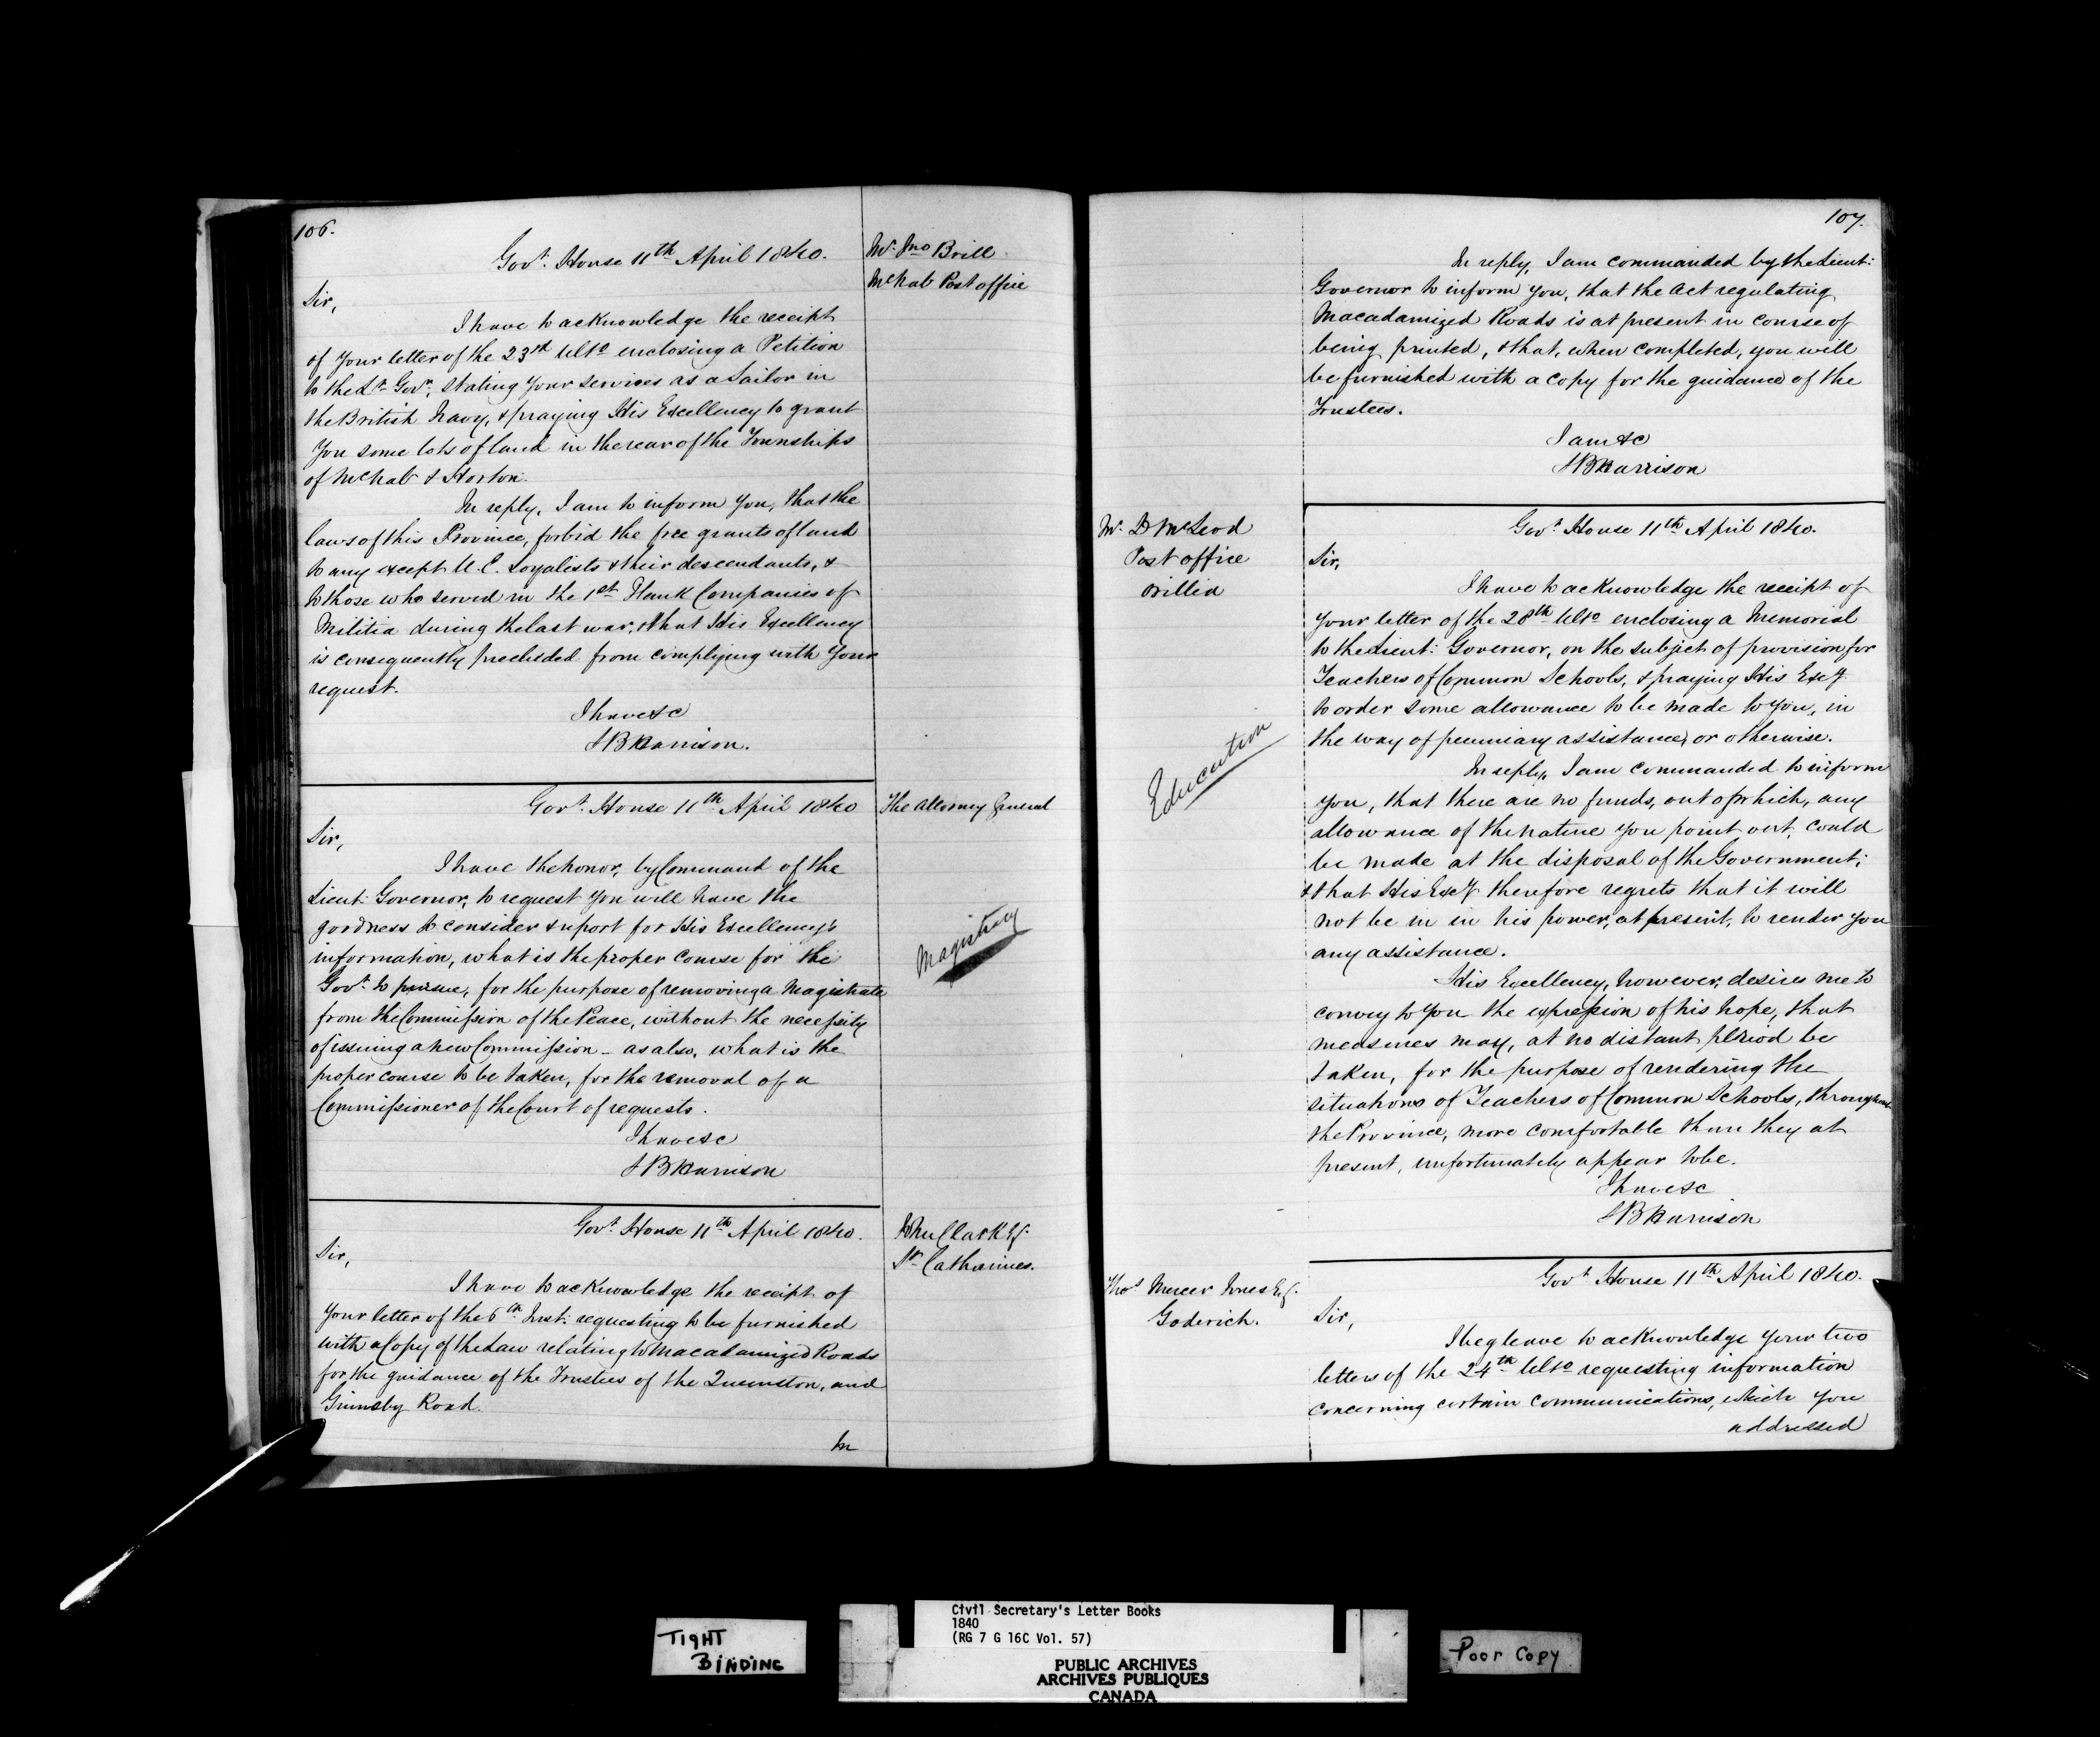 106.
Govt. House 11th April 1840.
Mr. Jno Brill
McNab Post office
Sir,
I have to acknowledge the receipt
of your letter of the 23rd Ulto enclosing a Petition
to the Lt. Govr. stating your services as a Sailor in
the British Navy, & praying His Excellency to grant
you some lots of land in the rear of the Townships
of McNab & Horton.
In reply, I am to inform you, that the
laws of this Province, forbid the free grants of land
to any except U.E. Loyalists & their descendants, &
to those who served in the 1st Flank Companies of
Militia during the last war, & that His Excellency
is consequently precluded from complying with your
request.
I have &c
SB Harrison.
Govt. House 11th April 1840
The Attorney General
Sir,
I have the honor, by Command of the
Lieut: Governor, to request you will have the
goodness to consider & report for His Excellency's
information, what is the proper course for the
Govt. to pursue, for the purpose of removing a Magistrate
from the Commission of the Peace, without the necessity
of issuing a new Commission - as also, what is the
proper course to be taken, for the removal of a
Commissioner of the Court of requests.
Magistracy
I have &c
SB Harrison
Govt. House 11th April 1840.
John Clark Esq.
St. Catharines.
Sir,
I have to acknowledge the receipt of
your letter of the 6th Inst: requesting to be furnished
with a Copy of the Law relating to Macadamized Roads
for the guidance of the Trustees of the Queenston, and
Grimsby Road.
In
107.
In reply, I am commanded by the Lieut:
Governor to inform you, that the Act regulating
Macadamized Roads is at present in course of
being printed, & that, when completed, you will
be furnished with a copy for the guidance of the
Trustees.
I am &c
SB Harrison
Mr. D McLeod
Post office
Orillia
Govt. House 11th April 1840.
Sir,
I have to acknowledge the receipt of
your letter of the 28th Ulto enclosing a Memorial
to the Lieut: Governor, on the subject of provision for
Teachers of Common Schools, & praying His Excy
to order some allowance to be made to you, in
the way of pecuniary assistance, or otherwise.
Education
In reply, I am commanded to inform
you, that there are no funds, out of which, any
allowance of the nature you point out, could
be made at the disposal of the Government;
& that His Excy therefore regrets that it will
not be in in his power, at present, to render you
any assistance.
His Excellency, however, desires me to
convey to you the expression of his hope, that
measures may, at no distant period be
taken, for the purpose of rendering the
situations of Teachers of Common Schools, throughout
the Province, more comfortable than they at
present, unfortunately appear to be.
I have &c
SB Harrison
Thos Mercer Jones Esq.
Goderich.
Govt House 11th April 1840.
Sir,
I beg leave to acknowledge your two
letters of the 24th Ulto requesting information
concerning certain communications, which you
addressed
TIGHT
BINDING
Civil Secretary's Letter Books
1840
(RG 7 G 16C Vol. 57)
PUBLIC ARCHIVES
ARCHIVES PUBLIQUES
CANADA
Poor Copy